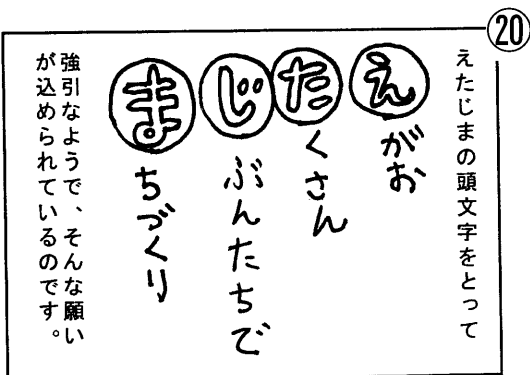 ⑳
えたじまの頭文字をとって
えがお
たくさん
じぶんたちで
まちづくり
強引なようで、そんな願い
が込められているのです。